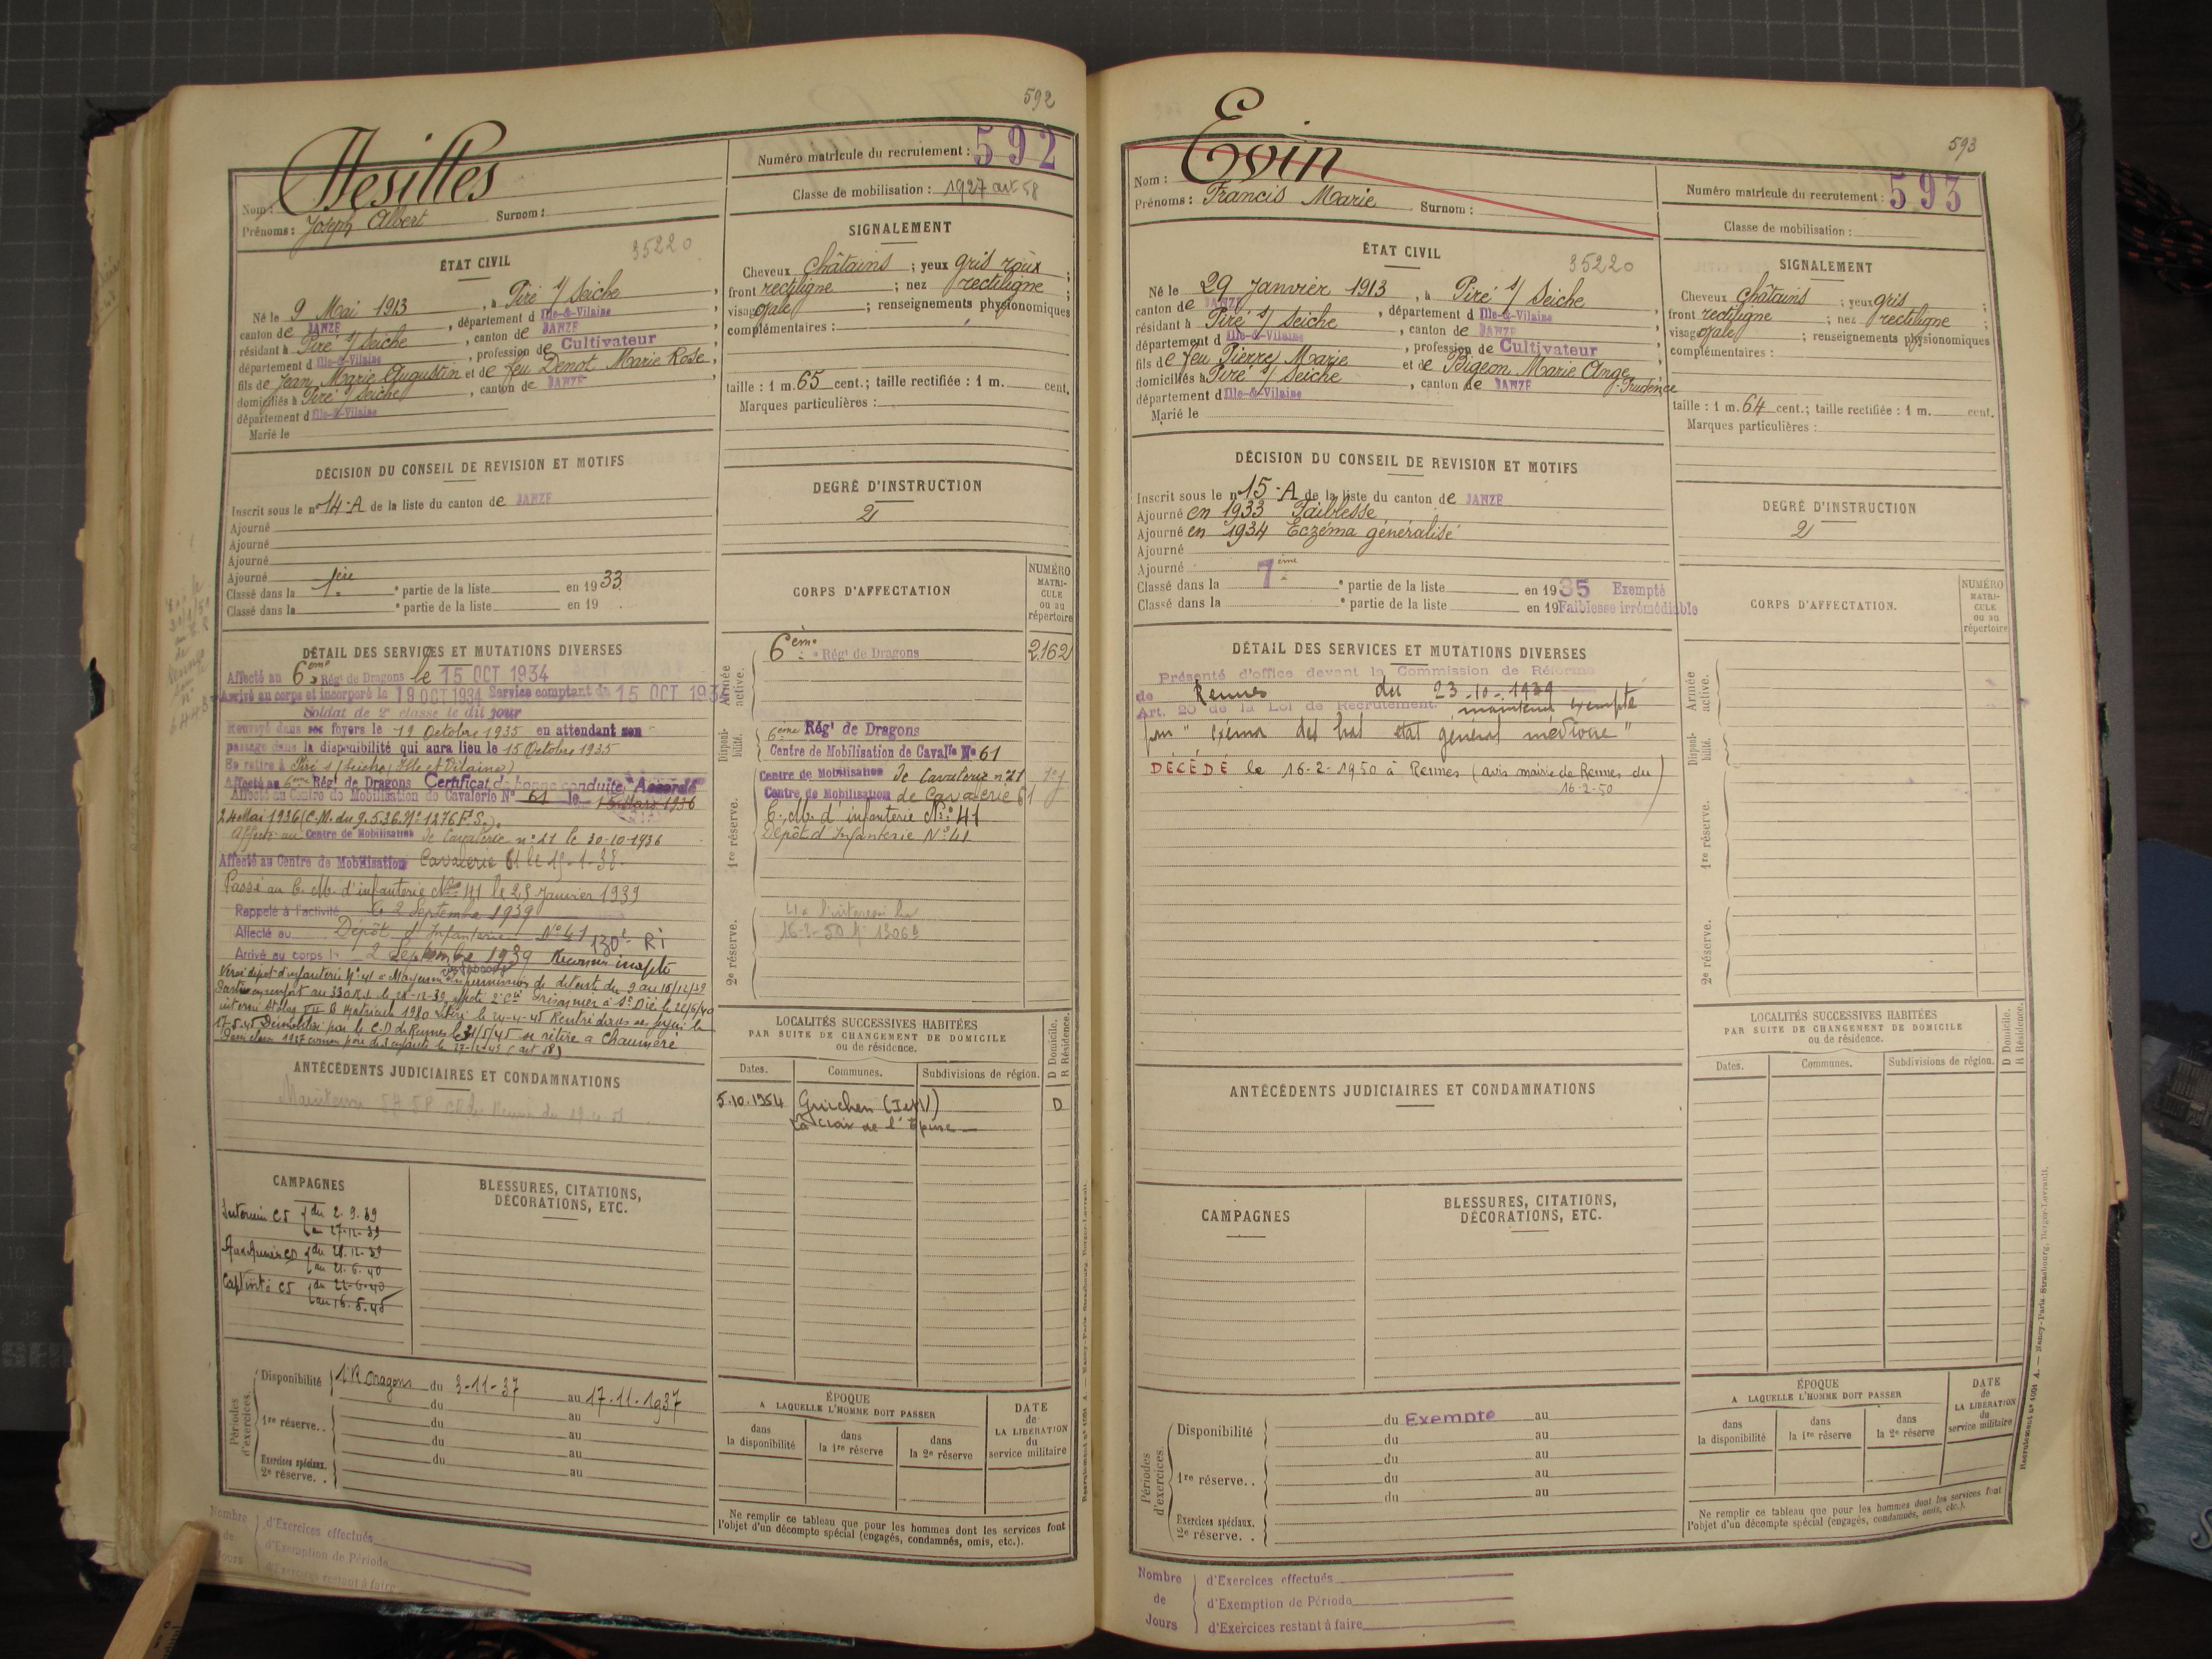 592
Nom : Desilles
Prénoms : Joseph Albert Surnom :
Numéro matricule du recrutement : 592
Classe de mobilisation : 1927 art 58
ÉTAT CIVIL
35220
Né le 9 Mai 1913, à Piré s/ Seiche,
canton de JANZE, département d Ille-&-Vilaine
résidant à Piré s/ Seiche, canton de JANZE
département d Ille-&-Vilaine, profession de Cultivateur
fils de Jean Marie Augustin et de feu Denot Marie Rose,
domiciliés à Piré s/ Seiche, canton de JANZE,
département d Ille-&-Vilaine
Marié le
SIGNALEMENT
Cheveux châtains ; yeux gris roux ;
front rectiligne ; nez rectiligne ;
visage ovale ; renseignements physionomiques
complémentaires :
taille : 1 m. 65 cent.; taille rectifiée : 1 m. cent.
Marques particulières :
DÉCISION DU CONSEIL DE REVISION ET MOTIFS
Inscrit sous le n° 14-A de la liste du canton de JANZE
Ajourné
Ajourné
Ajourné
Ajourné
Classé dans la 1ère ° partie de la liste en 1933.
Classé dans la ° partie de la liste en 19 .
DEGRÉ D'INSTRUCTION
2
CORPS D'AFFECTATION
NUMÉRO MATRI-CULE ou au répertoire
Armée active.
6ème ° Régt de Dragons 2162
Disponi-bilité.
6ème Régt de Dragons
Centre de Mobilisation de Cavalie N° 61
1re réserve.
Centre de Mobilisation de Cavalerie n° 21
Centre de Mobilisation de Cavalerie 61
C. M. d'infanterie N° 41
Dépôt d'Infanterie N° 41
2e réserve.
DÉTAIL DES SERVICES ET MUTATIONS DIVERSES
Affecté au 6ème Régt de Dragons le 15 OCT 1934
Arrivé au corps et incorporé le 19 OCT 1934 Service comptant du 15 OCT 1934
Soldat de 2e classe le dit jour
Renvoyé dans ses foyers le 19 Octobre 1935 en attendant son
passage dans la disponibilité qui aura lieu le 15 Octobre 1935
Se retire à Piré s/ Seiche (Ille et Vilaine)
Affecté au 6ème Régt de Dragons Certificat de bonne conduite Accordé
Affecté au Centre de Mobilisation de Cavalerie N° 61 le 15 Mars 1936
24 Mai 1936 (C.M. du 9.5.36. N° 1276 F.S.).
Affecté au Centre de Mobilisation de Cavalerie n° 21 le 30-10-1936
Affecté au Centre de Mobilisation Cavalerie 61 le 15-1-38.
Passé au C. M. d'infanterie N° 41 le 25 Janvier 1939
Rappelé à l'activité le 2 Septembre 1939
Affecté au Dépôt d'Infanterie N° 41 130e RI
Arrivé au corps le 2 Septembre 1939 Reconnu inapte
Versé dépôt d'infanterie N° 41 à Mayenne permission de détente du 9 au 18/12/39
Parti en renfort au 330 R.I. le 28-12-39 affecté 2e Cie Prisonnier à St Dié le 22/6/40
interné Stalag VII B Matricule 1980 Libéré le 24-4-45 Rentré dans ses foyers le
17-5-45 Démobilisé par le C.D de Rennes le 31/5/45 se retire à Chaumeré
Passé classe 1927 comme père de 3 enfants le 27-12-45 (art 58)
ANTÉCÉDENTS JUDICIAIRES ET CONDAMNATIONS
LOCALITÉS SUCCESSIVES HABITÉES
PAR SUITE DE CHANGEMENT DE DOMICILE
ou de résidence.
D Domicile. R Résidence.
Dates. Communes. Subdivisions de région.
5.10.1954 Guichen (I et V) D
La Croix de l'Epine
CAMPAGNES
Intérieur CS du 2.9.39
au 27-12-39
Aux Armées CD du 28.12.39
au 21.6.40
Captivité CS du 22-6-40
au 16.5.45
BLESSURES, CITATIONS,
DÉCORATIONS, ETC.
Périodes d'exercices.
Disponibilité 1e R Dragons du 3-11-37 au 17-11-1937
du au
1re réserve. . du au
du au
du au
Exercices spéciaux. 2e réserve. . au
ÉPOQUE
A LAQUELLE L'HOMME DOIT PASSER
dans la disponibilité
dans la 1re réserve
dans la 2e réserve
DATE de LA LIBÉRATION du service militaire
Ne remplir ce tableau que pour les hommes dont les services font
l'objet d'un décompte spécial (engagés, condamnés, omis, etc.).
Nombre de Jours
d'Exercices effectués
d'Exemption de Période
d'Exercices restant à faire
593
Nom : Evin
Prénoms : Francis Marie Surnom :
Numéro matricule du recrutement : 593
Classe de mobilisation :
ÉTAT CIVIL
35220
Né le 29 Janvier 1913, à Piré s/ Seiche,
canton de JANZE, département d Ille-&-Vilaine
résidant à Piré s/ Seiche, canton de JANZE
département d Ille-&-Vilaine, profession de Cultivateur
fils de feu Pierre Marie et de Bigeon Marie Ange Prudence
domiciliés à Piré s/ Seiche, canton de JANZE
département d Ille-&-Vilaine
Marié le
SIGNALEMENT
Cheveux châtains ; yeux gris ;
front rectiligne ; nez rectiligne ;
visage ovale ; renseignements physionomiques
complémentaires :
taille : 1 m. 64 cent.; taille rectifiée : 1 m. cent.
Marques particulières :
DÉCISION DU CONSEIL DE REVISION ET MOTIFS
Inscrit sous le n° 15-A de la liste du canton de JANZE
Ajourné en 1933 Faiblesse
Ajourné en 1934 Eczéma généralisé
Ajourné
Ajourné
Classé dans la 7ème ° partie de la liste en 1935 Exempté
Classé dans la ° partie de la liste en 19 Faiblesse irrémédiable
DEGRÉ D'INSTRUCTION
2
CORPS D'AFFECTATION.
NUMÉRO MATRI-CULE ou au répertoire
Armée active.
Disponi-bilité.
1re réserve.
2e réserve.
DÉTAIL DES SERVICES ET MUTATIONS DIVERSES
Présenté d'office devant la Commission de Réforme
de Rennes du 23-10-1939
Art. 20 de la Loi de Recrutement. maintenu exempté
pour " eczéma des bras état général médiocre "
DÉCÉDÉ le 16-2-1950 à Rennes (avis mairie de Rennes du
16-2-50)
ANTÉCÉDENTS JUDICIAIRES ET CONDAMNATIONS
LOCALITÉS SUCCESSIVES HABITÉES
PAR SUITE DE CHANGEMENT DE DOMICILE
ou de résidence.
D Domicile. R Résidence.
Dates. Communes. Subdivisions de région.
CAMPAGNES
BLESSURES, CITATIONS,
DÉCORATIONS, ETC.
Périodes d'exercices.
Disponibilité du Exempté au
du au
du au
1re réserve. . du au
du au
Exercices spéciaux. 2e réserve. .
ÉPOQUE
A LAQUELLE L'HOMME DOIT PASSER
dans la disponibilité
dans la 1re réserve
dans la 2e réserve
DATE de LA LIBÉRATION du service militaire
Ne remplir ce tableau que pour les hommes dont les services font
l'objet d'un décompte spécial (engagés, condamnés, omis, etc.).
Recrutement n° 1004 A. — Nancy-Paris-Strasbourg, Berger-Levrault.
Nombre de Jours
d'Exercices effectués
d'Exemption de Période
d'Exercices restant à faire